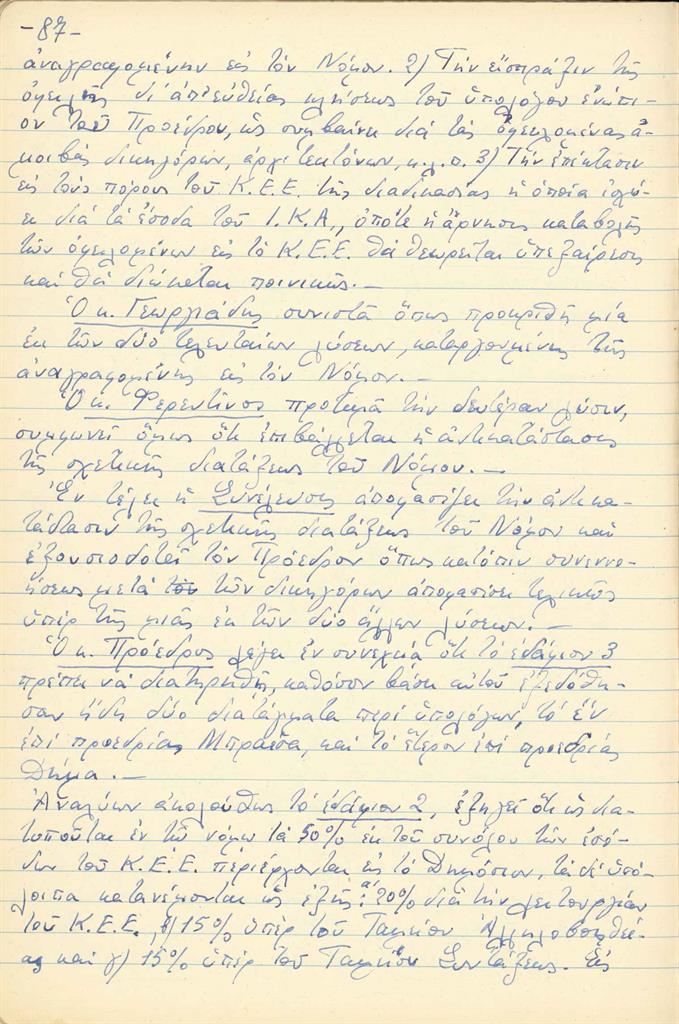 -87-
ἀναγραφομένην εἰς τὸν Νόμον. 2) Τὴν εἴσπραξιν τῆς
ὀφειλῆς δι' ἀπ' εὐθείας κλήσεως τοῦ ὑπολόγου ἐνώπι-
ον τοῦ Προέδρου, ὡς συμβαίνει διὰ τὰς ὀφειλομένας ἀ-
μοιβὰς δικηγόρων, ἀρχιτεκτόνων, κ.λ.π. 3) Τὴν ἐπέκτασιν
εἰς τοὺς πόρους τοῦ Κ.Ε.Ε. τῆς διαδικασίας ἡ ὁποία ἰσχύ-
ει διὰ τὰ ἔσοδα τοῦ Ι.Κ.Α., ὁπότε ἡ ἄρνησις καταβολῆς
τῶν ὀφειλομένων εἰς τὸ Κ.Ε.Ε. θὰ θεωρεῖται ὑπεξαίρεσις
καὶ θὰ διώκεται ποινικῶς.—
Ὁ κ. Γεωργιάδης συνιστᾶ ὅπως προκριθῇ μία
ἐκ τῶν δύο τελευταίων λύσεων, καταργουμένης τῆς
ἀναγραφομένης εἰς τὸν Νόμον.—
Ὁ κ. Φερεντῖνος προτιμᾶ τὴν δευτέραν λύσιν,
συμφωνεῖ ὅμως ὅτι ἐπιβάλλεται ἡ ἀντικατάστασις
τῆς σχετικῆς διατάξεως τοῦ Νόμου.—
Ἐν τέλει ἡ Συνέλευσις ἀποφασίζει τὴν ἀντικα-
τάστασιν τῆς σχετικῆς διατάξεως τοῦ Νόμου καὶ
ἐξουσιοδοτεῖ τὸν Πρόεδρον ὅπως κατόπιν συνεννο-
ήσεως μετὰ τῶν δικηγόρων ἀποφασίσει τελικῶς
ὑπὲρ τῆς μιᾶς ἐκ τῶν δύο ἄλλων λύσεων.—
Ὁ κ. Πρόεδρος λέγει ἐν συνεχείᾳ ὅτι τὸ ἐδάφιον 3
πρέπει νὰ διατηρηθῇ, καθόσον βάσει αὐτοῦ ἐξεδόθη-
σαν ἤδη δύο διατάγματα περὶ ὑπολόγων, τὸ ἓν
ἐπὶ προεδρίας Μπράεσα, καὶ τὸ ἕτερον ἐπὶ προεδρίας
Δήμα.—
Ἀναλύων ἀκολούθως τὸ ἐδάφιον 2, ἐξηγεῖ ὅτι ὡς δια-
τυποῦται ἐν τῷ νόμῳ τὰ 50% ἐκ τοῦ συνόλου τῶν ἐσό-
δων τοῦ Κ.Ε.Ε. περιέρχονται εἰς τὸ Δημόσιον, τὰ δὲ ὑπό-
λοιπα κατανέμονται ὡς ἑξῆς: α) 20% διὰ τὴν λειτουργίαν
τοῦ Κ.Ε.Ε. β) 15% ὑπὲρ τοῦ Ταμείου Ἀλληλοβοηθεί-
ας καὶ γ) 15% ὑπὲρ τοῦ Ταμείου Συντάξεως. Εἰς